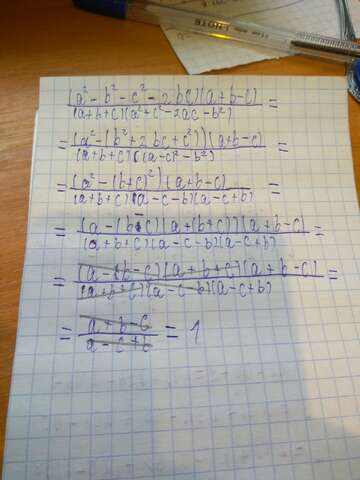 (a² - b² - c² - 2bc)(a+b-c) / (a+b+c)(a²+c²-2ac-b²) =
= (a² - (b² + 2bc + c²))(a+b-c) / (a+b+c)((a-c)² - b²) =
= (a² - (b+c)²)(a+b-c) / (a+b+c)(a-c-b)(a-c+b) =
= (a - (b+c)(a+(b+c))(a+b-c) / (a+b+c)(a-c-b)(a-c+b) =
= (a-b-c)(a+b+c)(a+b-c) / (a+b+c)(a-c-b)(a-c+b) =
= a+b-c / a-c+b = 1